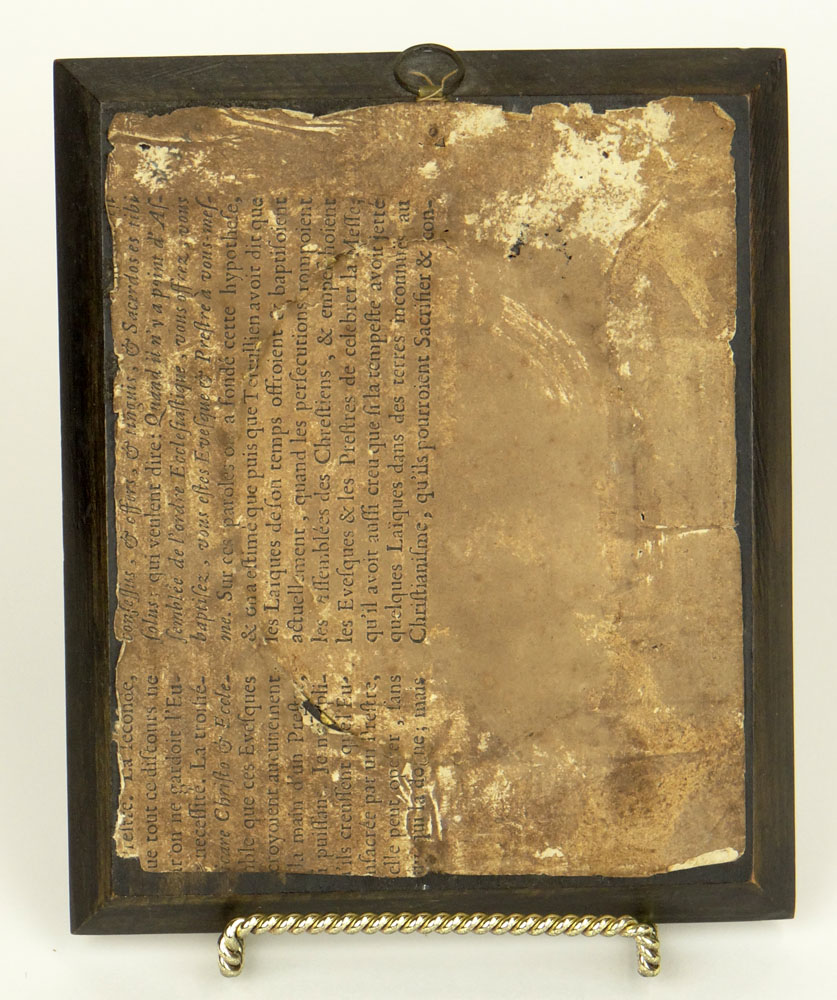 confessus, & offers, & tinguis, & Sacerdos es tibi
solus: qui veulent dire: Quand il n'y a point d'As-
semblée de l'ordre Ecclesiastique, vous offrez, vous
baptisez, vous estes Evesque & Prestre à vous-mes-
me. Sur ces paroles on a fondé cette hypothese,
& on a estimé que puis que Tertullien avoit dit que
les Laïques de son temps offroient & baptisoient
actuellement, quand les persecutions rompoient
les assemblées des Chrestiens, & empeschoient
les Evesques & les Prestres de celebrer la Messe;
qu'il avoit aussi creu que si la tempeste avoit jetté
quelques Laïques dans des terres inconnuës au
Christianisme, qu'ils pourroient Sacrifier & con-
La seconde,
ue tout ce discours ne
on ne gardoit l'Eu-
necessité. La troisié-
Christo & Eccle-
ble que ces Evesques
croyoient aucunement
la main d'un Prestre,
puissan. Je ne
ils creussent que l'Eu-
sacrée par un Prestre,
elle peut operer, sans
qui la donne; mais